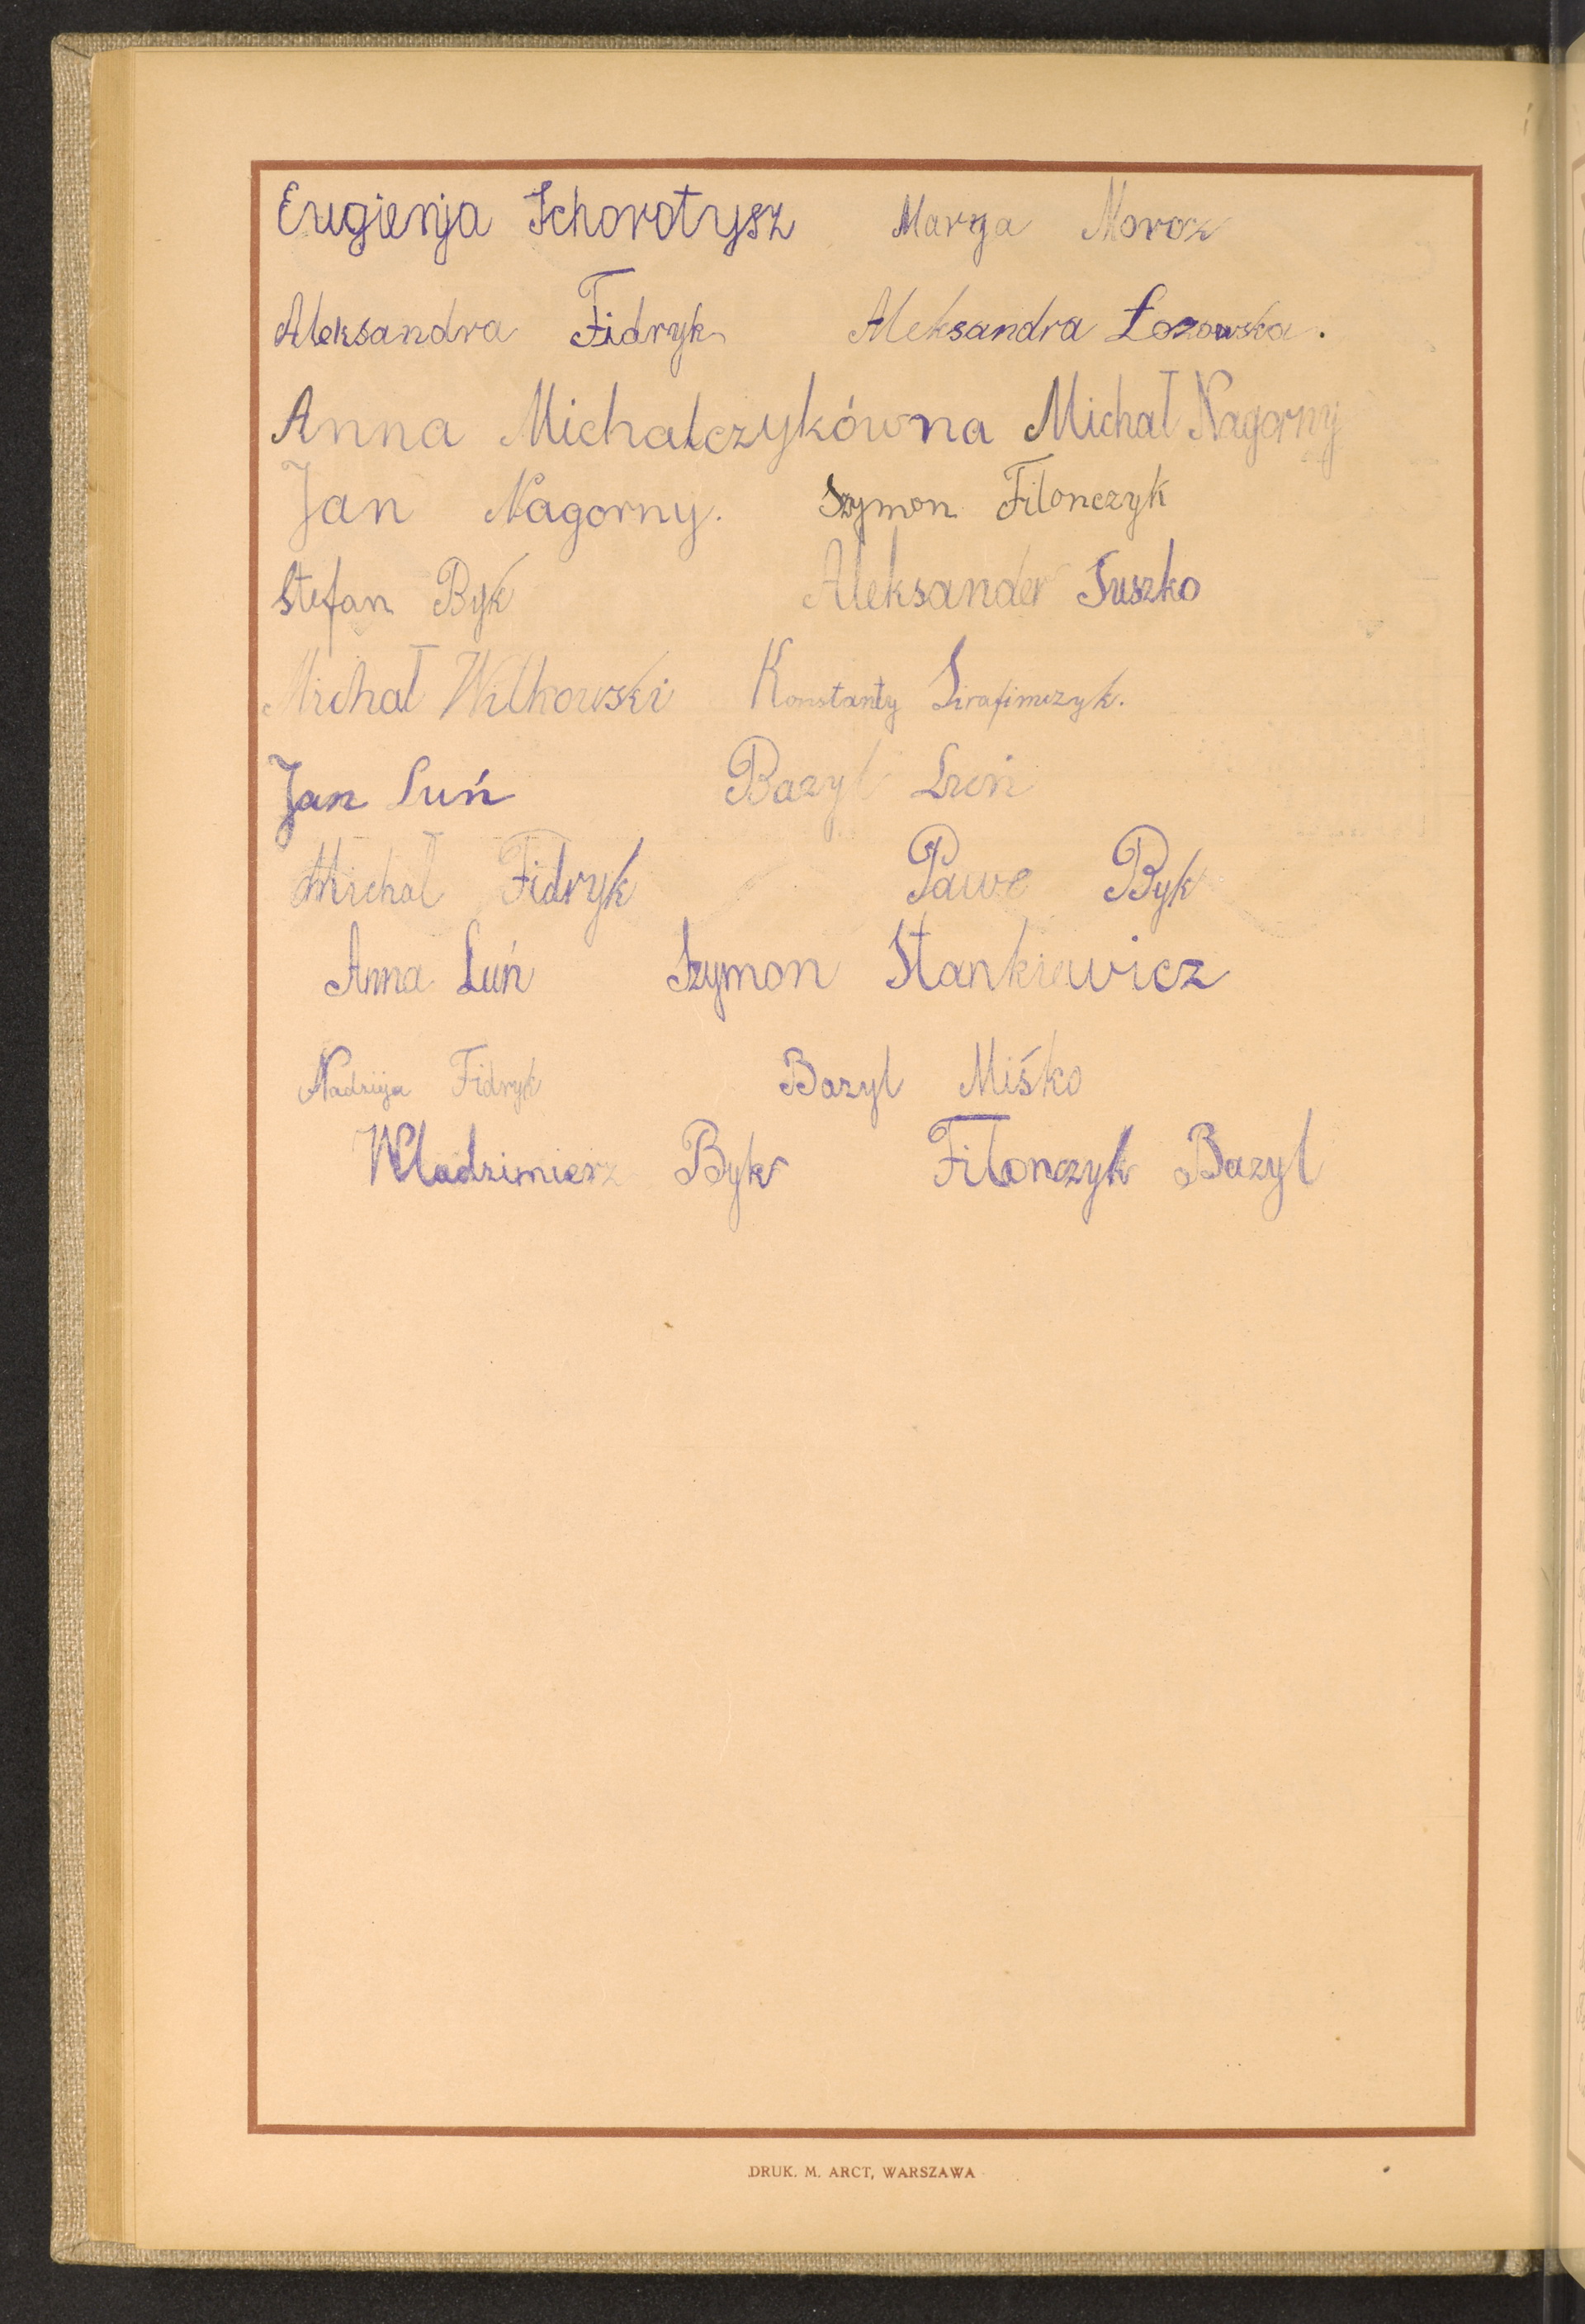 Eugienja Schorotysz Marya Moroz
Aleksandra Fidryk Aleksandra Łozowska.
Anna Michalczykówna Michał Nagorny
Jan Nagorny. Szymon Filonczyk
Stefan Byk Aleksander Suszko
Michał Witkowski Konstanty Sirafimczyk.
Jan Luń Bazyl Luń
Michał Fidryk Pawe Byk
Anna Luń Szymon Stankiewicz
Nadzija Fidryk Bazyl Miśko
Wladzimierz Byk Filonczyk Bazyl
DRUK. M. ARCT, WARSZAWA